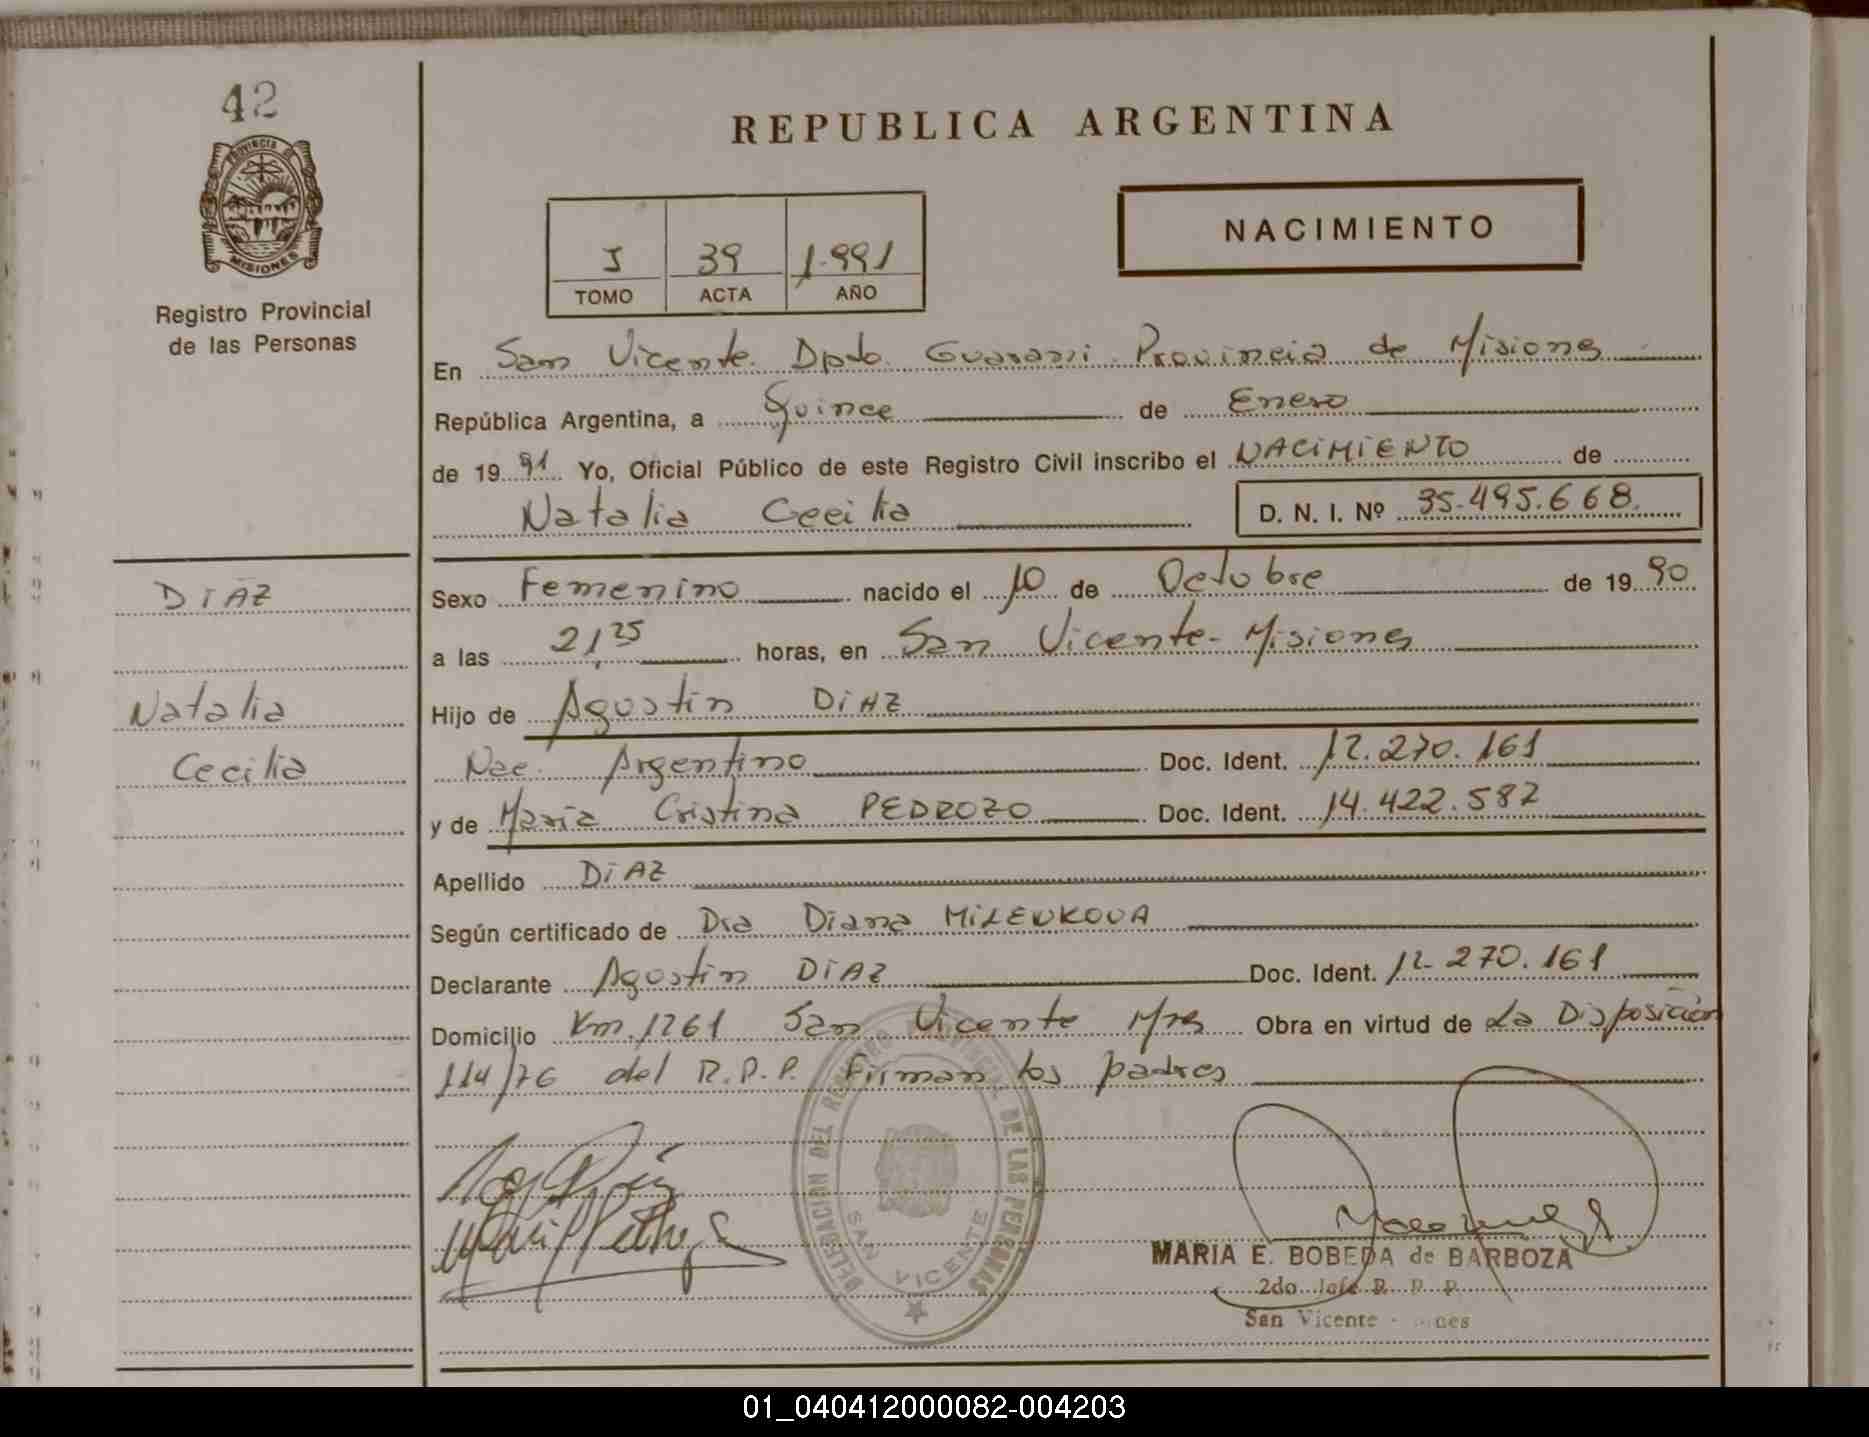 42
PROVINCIA DE
MISIONES
Registro Provincial
de las Personas
REPUBLICA ARGENTINA
NACIMIENTO
I 39 1.991
TOMO ACTA AÑO
En San Vicente. Dpto. Guarani. Provincia de Misiones
República Argentina, a Quince de Enero
de 19 91 Yo, Oficial Público de este Registro Civil inscribo el NACIMIENTO de
Natalia Cecilia D. N. I. Nº 35.495.668.
DIAZ
Natalia
Cecilia
Sexo Femenino nacido el 10 de Octubre de 19 90
a las 21,25 horas, en San Vicente - Misiones
Hijo de Agustin DIAZ
Nac. Argentino Doc. Ident. 12.270.161
y de Maria Cristina PEDROZO Doc. Ident. 14.422.587
Apellido DIAZ
Según certificado de Dra Diana MILENKOVA
Declarante Agustin DIAZ Doc. Ident. 12.270.161
Domicilio Km. 1261 San Vicente Mnes Obra en virtud de La Disposición
114/76 del R.P.P. Firman los padres
DELEGACION DEL REGISTRO PROVINCIAL DE LAS PERSONAS
SAN VICENTE
MARIA E. BOBEDA de BARBOZA
2do. Jefe R. P. P.
San Vicente -
01_040412000082-004203